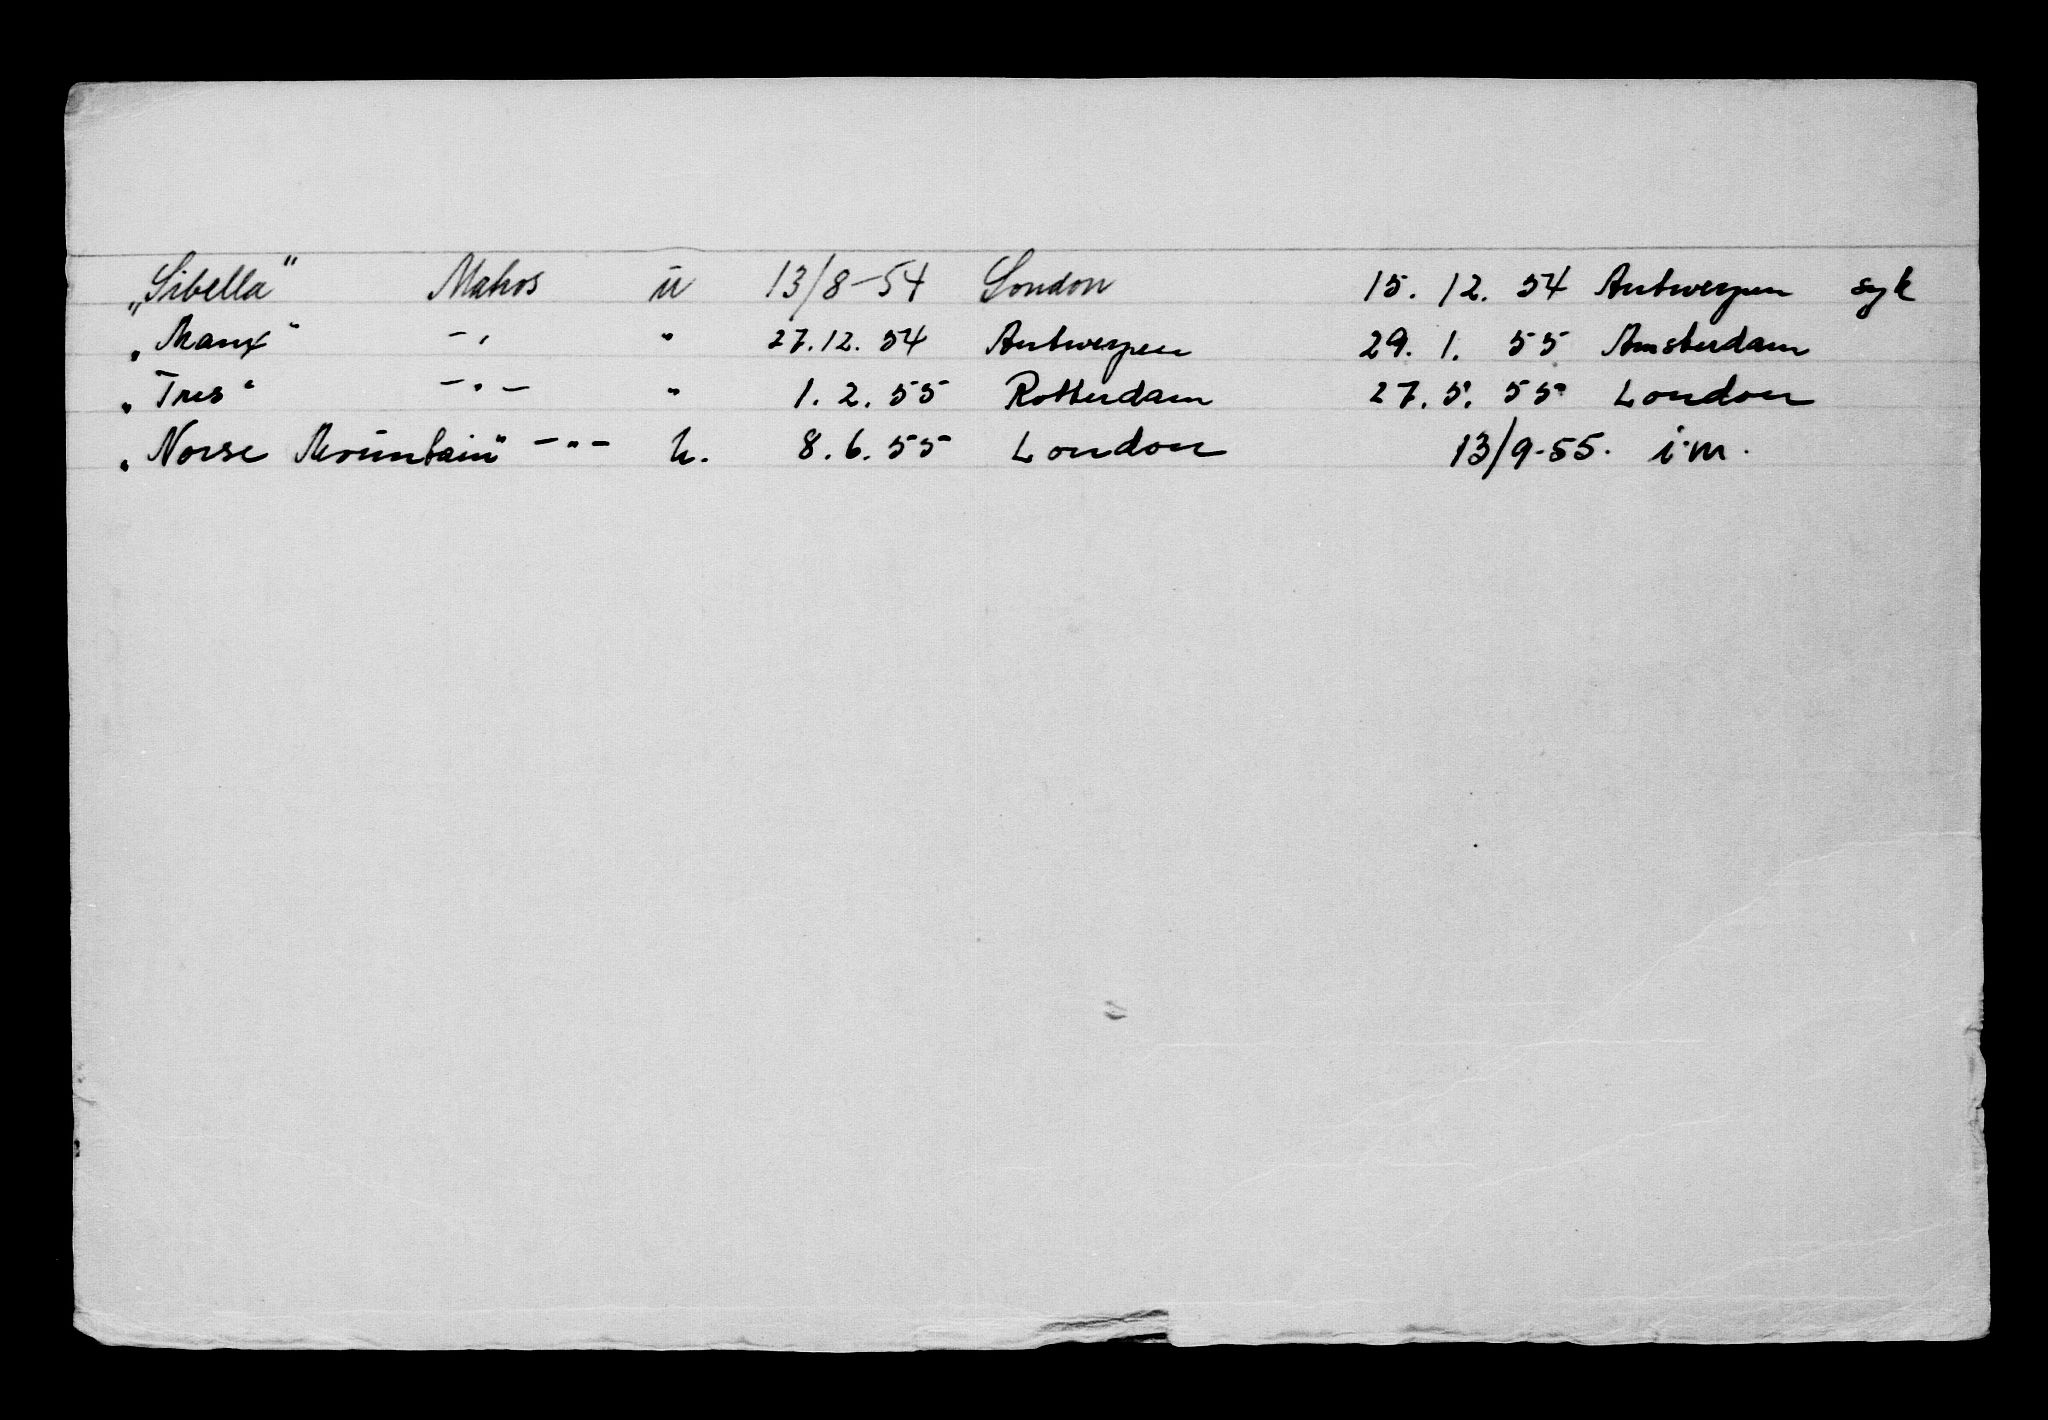 „Sibella" Matros u 13/8-54 London 15. 12. 54 Antwerpen syk
„Manx" -„ " 27.12. 54 Antwerpen 29. 1. 55 Amsterdam
„Tres" -"- " 1. 2. 55 Rotterdam 27. 5. 55 London
„Norse Mountain" -"- h. 8. 6. 55 London 13/9-55. i.m.